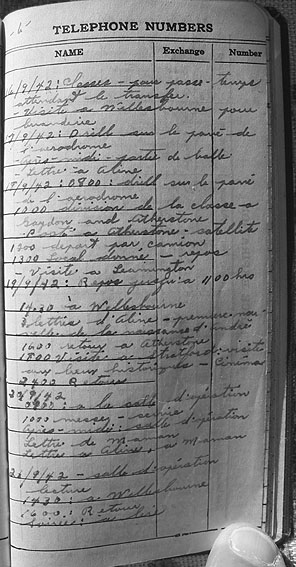 TELEPHONE NUMBERS
NAME Exchange Number
16/9/42: Classes - pour passe-temps
attendant le transfer.
- Visite à Wellesbourne pour
17/9/42: Drill sur le pavé de
l'aérodrome
Après-midi - partie de balle
Lettre à Aline
18/9/42: 0800: drill sur le pavé
de l'aérodrome
1000 division de la classe - à
Gaydon and Atherstone
- Posté à Atherstone - satellite
1200 départ par camion
1300 Local donné - repos
- Visite à Leamington
19/9/42: Repos jusqu'à 1100 hrs
1430 à Wellesbourne
lettres d'Aline - première
la naissance d'André
1600 retour à Atherstone
1800 Visite à Stratford: visite
aux lieux historiques - Cinéma
2400 Retour
20/9/42
0900: à la salle d'opération
1000 messe - service
Après-midi: salle d'opération
Lettre de Maman
Lettre à Aline, à Maman
21/9/42 - salle d'opération
lecture
1430: à Wellesbourne
1600: Retour
Soirée: à lire